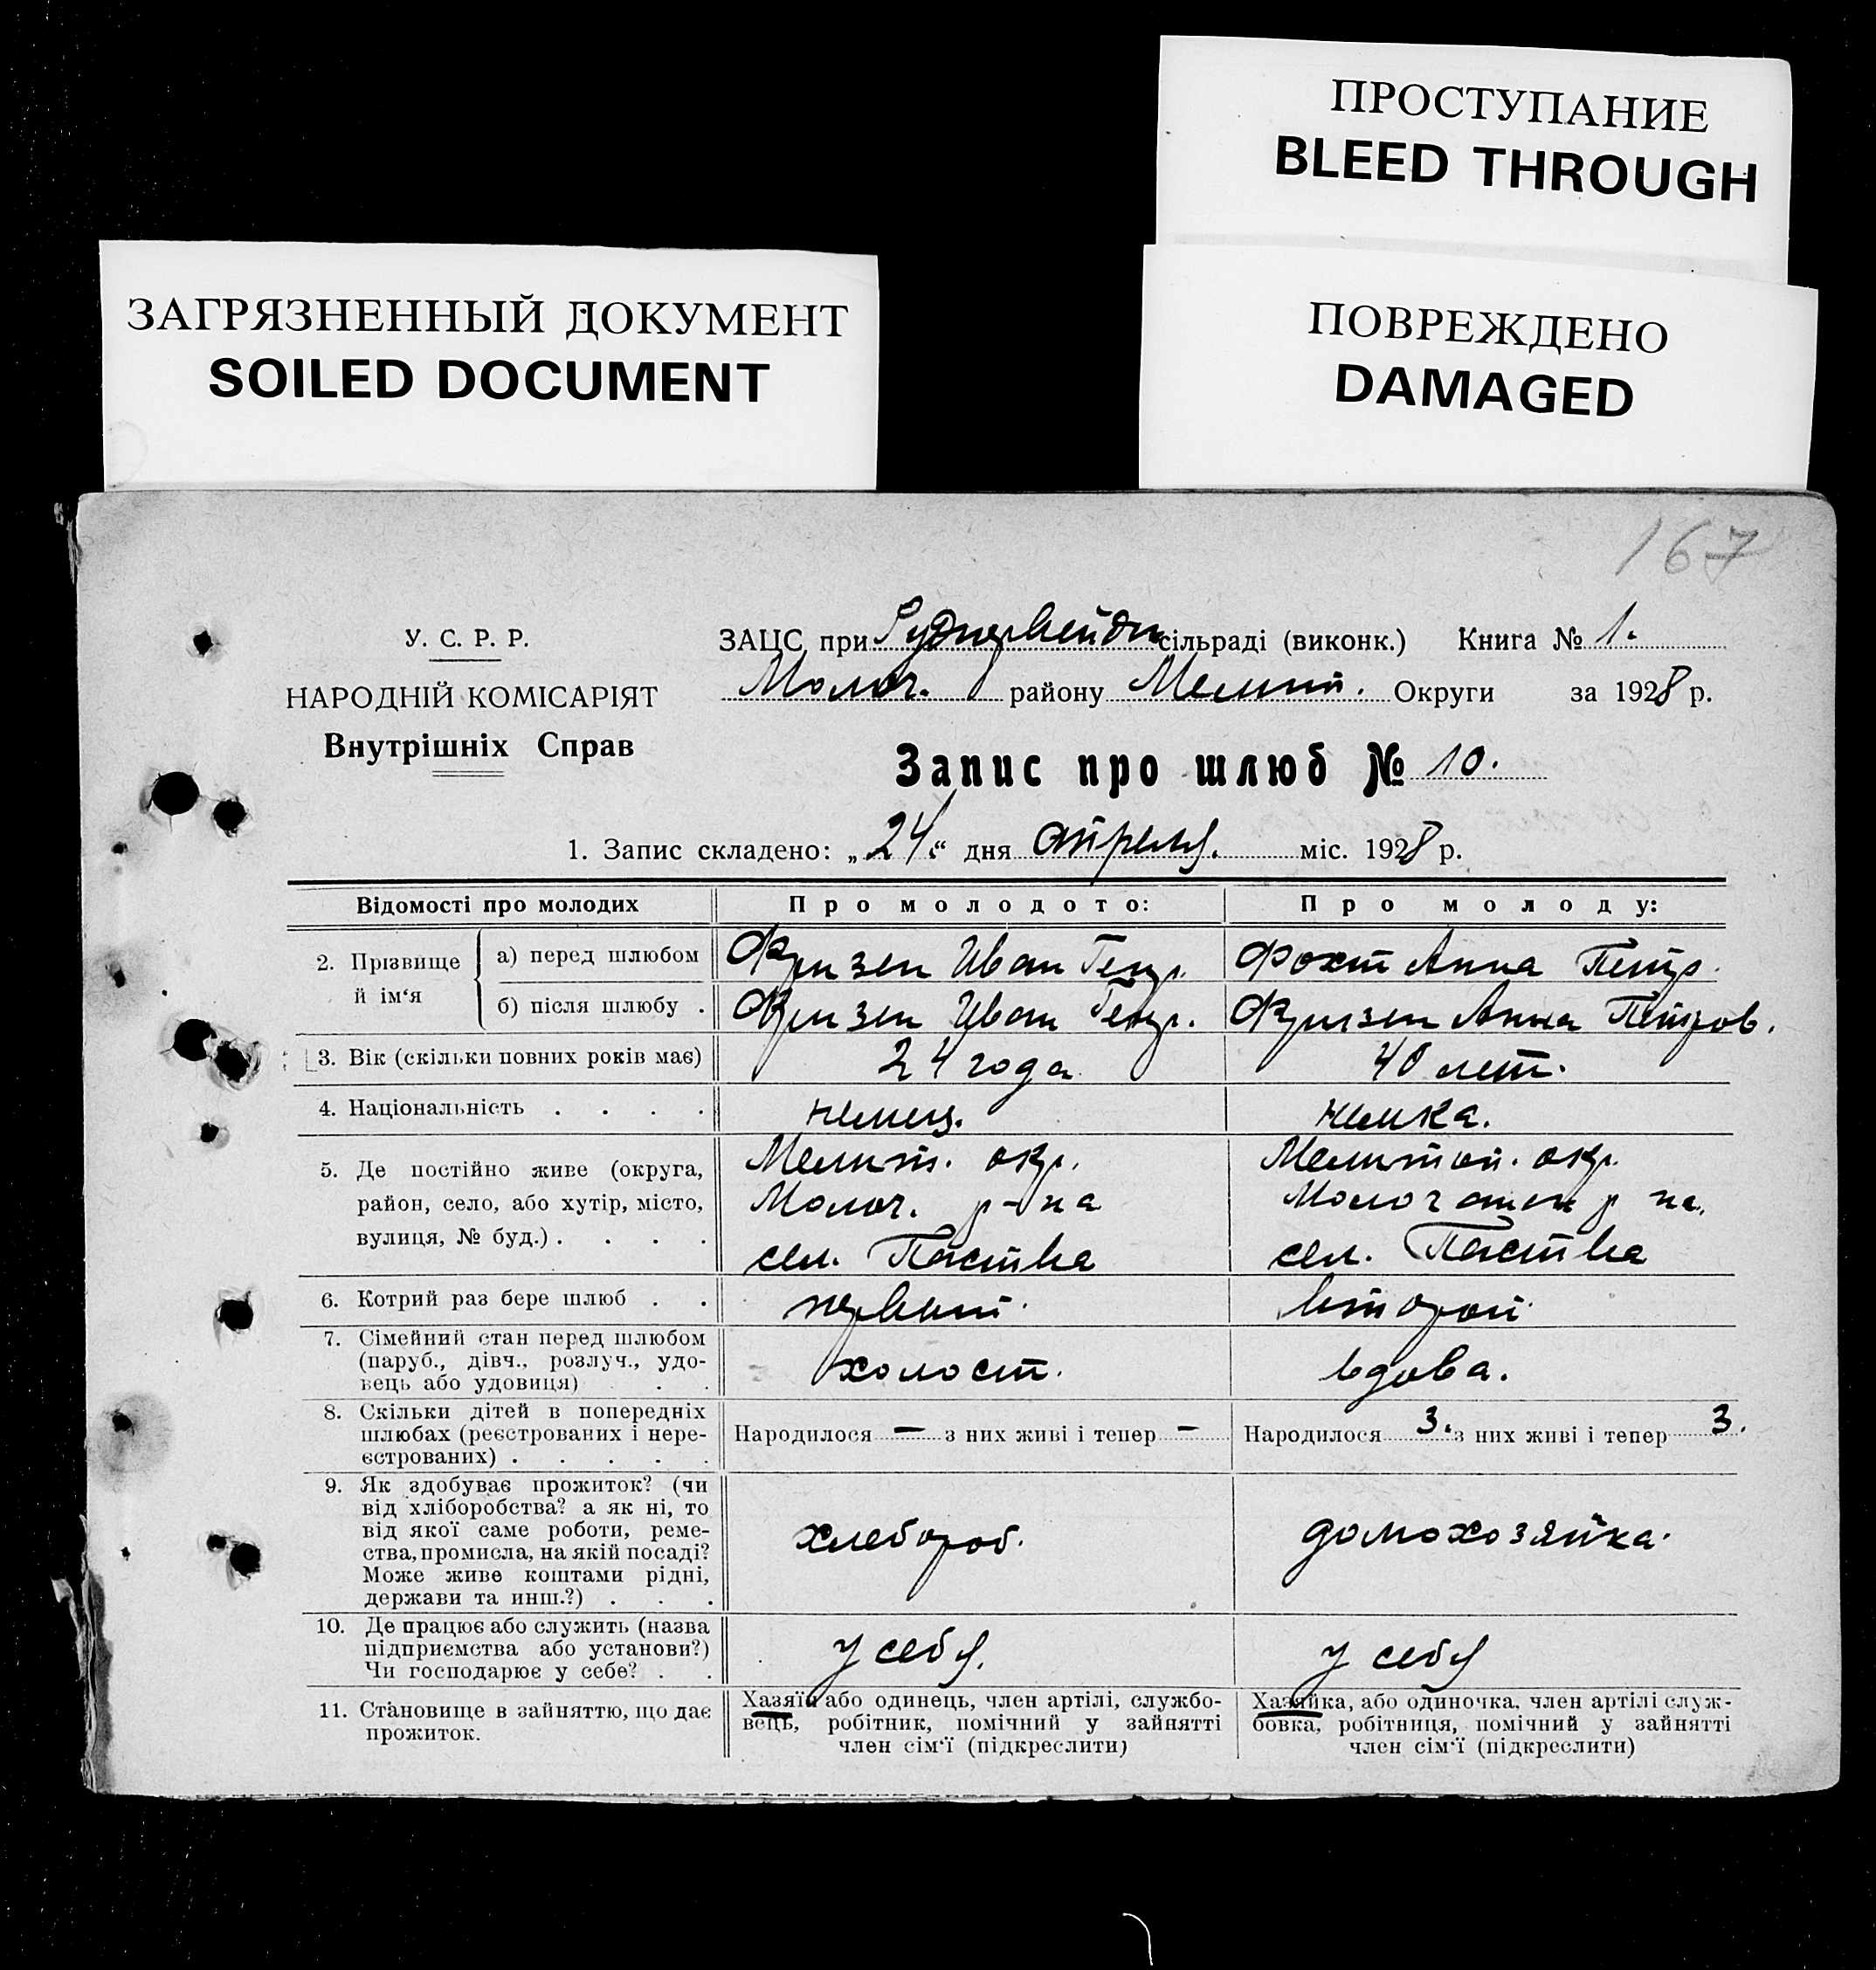 ПРОСТУПАНИЕ
BLEED THROUGH
ЗАГРЯЗНЕННЫЙ ДОКУМЕНТ
SOILED DOCUMENT
ПОВРЕЖДЕНО
DAMAGED
167
У. С. Р. Р.
НАРОДНІЙ КОМІСАРІЯТ
Внутрішніх Справ
ЗАЦС при сільраді (виконк.) Книга № 1.
Молоч. району Мелит. Округи за 1928 р.
Запис про шлюб № 10.
1. Запис складено: „24.“ дня апреля. міс. 1928 р.
Відомості про молодих Про молодого: Про молоду:
2. Прізвище й ім‘я
а) перед шлюбом Фризен Иван Генр. Фохт Анна Петр.
б) після шлюбу . Фризен Иван Генр. Фризен Анна Петров.
3. Вік (скільки повних років має) 24 года 40 лет.
4. Національність . . . . немец. немка.
5. Де постійно живе (округа, район, село, або хутір, місто, вулиця, № буд.) . . . .
Мелит. окр.
Молоч. р-на
сел. Паства
Мелитоп. окр.
Молочанск р на.
сел. Паства
6. Котрий раз бере шлюб . . первый. второй.
7. Сімейний стан перед шлюбом
(паруб., дівч., розлуч., удо-
вець або удовиця) . . холост. вдова.
8. Скільки дітей в попередніх
шлюбах (реєстрованих і нере-
єстрованих) . . . . .
Народилося — з них живі і тепер —
Народилося 3. з них живі і тепер 3.
9. Як здобуває прожиток? (чи
від хліборобства? а як ні, то
від якої саме роботи, реме-
ства, промисла, на якій посаді?
Може живе коштами рідні,
держави та инш.?) . . .
хлебороб.
домохозяйка.
10. Де працює або служить (назва
підприємства або установи?)
Чи господарює у себе? . .
у себя.
у себя
11. Становище в зайняттю, що дає
прожиток.
Хазяїн або одинець, член артілі, службо-
вець, робітник, помічний у зайнятті
член сім‘ї (підкреслити)
Хазяйка, або одиночка, член артілі служ-
бовка, робітниця, помічний у зайнятті
член сім‘ї (підкреслити)